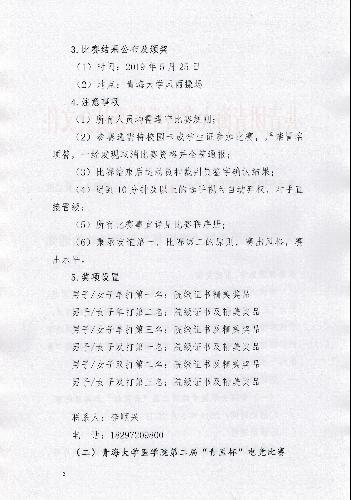 3.比赛结果公布及颁奖
（1）时间：2019年5月25日
（2）地点：青海大学风雨操场
4.注意事项
（1）所有人员均需遵守比赛规则；
（2）参赛选需持校园卡或学生证参加比赛，严禁冒名
顶替，一经发现取消比赛资格并全校通报；
（3）比赛结束后运动员和裁判员签字确认结果；
（4）迟到10分钟及以上的运动员为自动弃权，对手直
接晋级；
（5）所有比赛事宜详见比赛秩序册；
（6）秉承友谊第一，比赛第二的原则，赛出风格，赛
出水平。
5.奖项设置
男子/女子单打第一名：院级证书精美奖品
男子/女子单打第二名：院级证书及精美奖品
男子/女子单打第三名：院级证书及精美奖品
男子/女子双打第一名：院级证书及精美奖品
男子/女子双打第二名：院级证书及精美奖品
男子/女子双打第三名：院级证书及精美奖品
联系人：李顺兴
电 话：18297209800
（二）青海大学医学院第二届“青医杯”电竞比赛